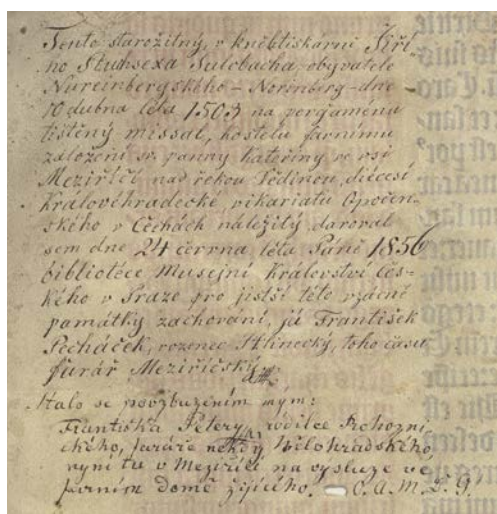 Tento starožitný, v knětiskárni Jiří-
no Stuhsexa Sulcbacha obyvatele
Nureinbergského – Norinberg – dne
10 dubna léta 1503 na pergamenu
tištěný missal, kostelu farnímu
založení sv. panny Kateřiny ve vsi
Meziříčí nad řekou Dědinou, diécési
kralovéhradecké, vikariatu Opočen-
ského v Čechách náležitý daroval
sem dne 24 června léta Páně 1856
bibliotéce Musejní království Čes-
kého v Praze pro jistší této vzácné
památky zachování, já František
Pecháček, rozenec Hlinecký, toho času
farář Meziříčský
Stalo se povzbuzením mým:
Františka Petery, rodilce Rohozni-
ckého, faráře někdy Bělohradského,
nyní tu v Meziříčí na výsluze ve
farním domě žijícího. – O. A. M. D. G.